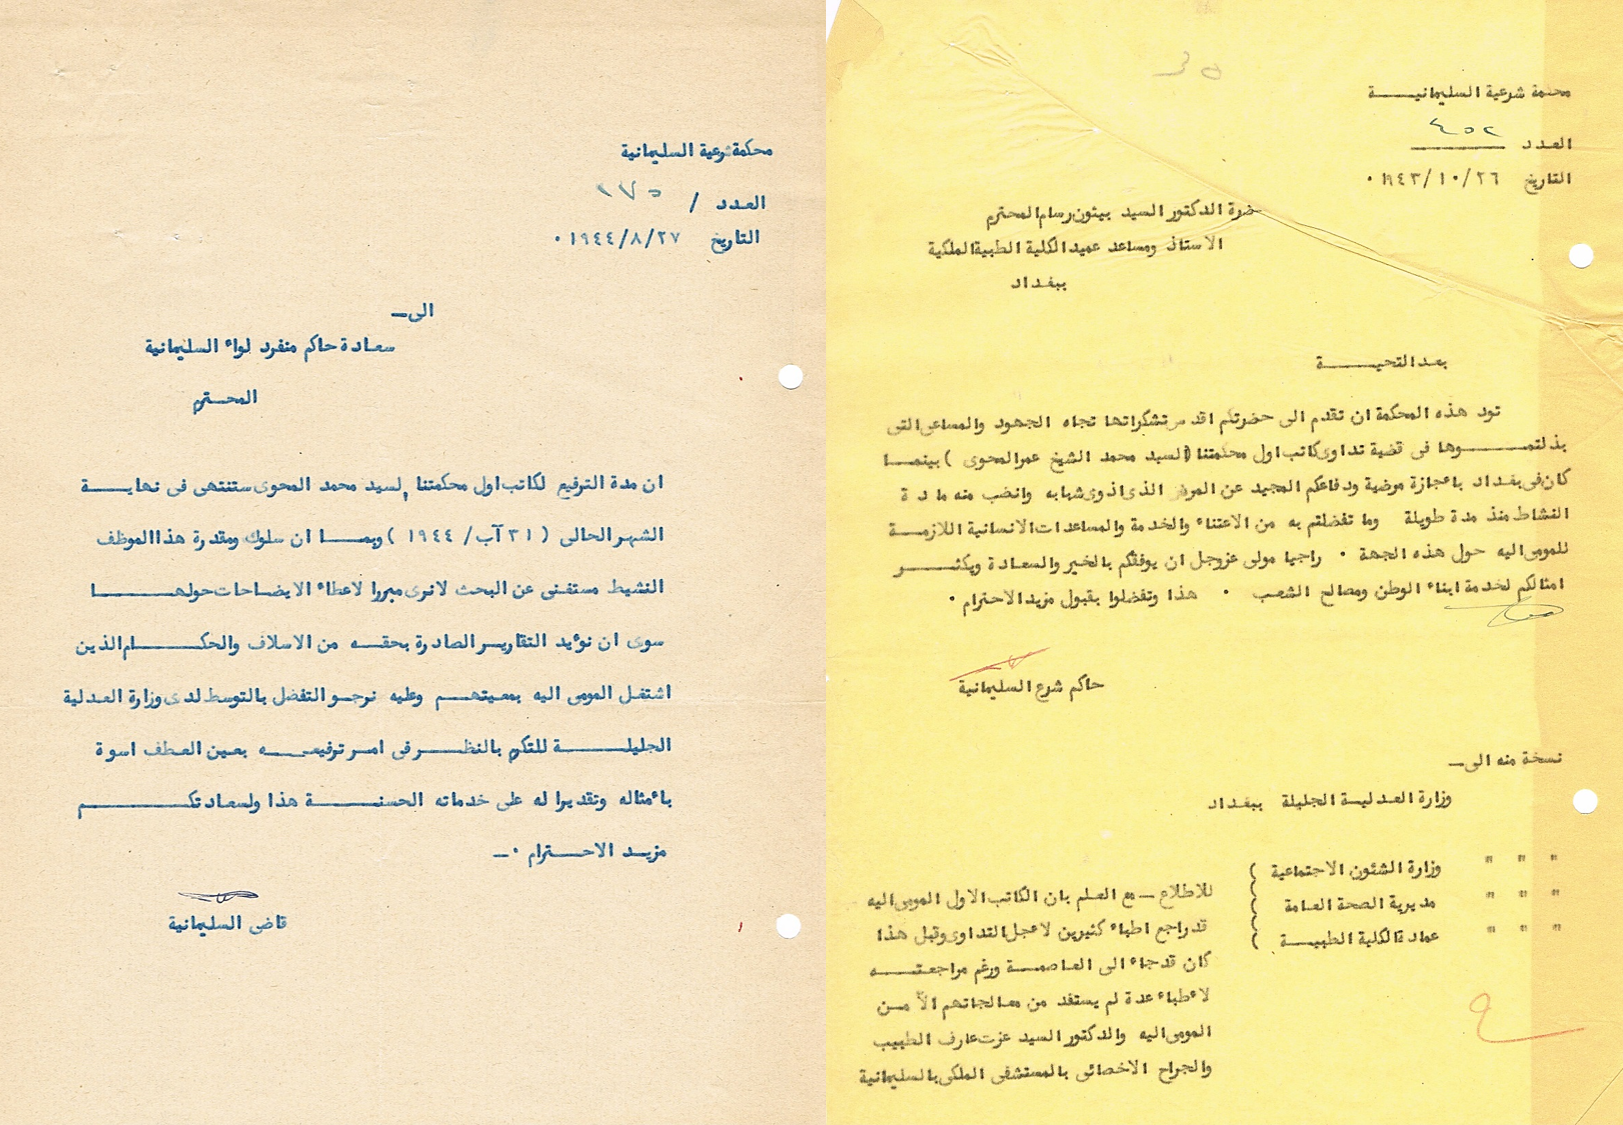 محكمة شرعية السليمانية
العدد / ١٧٥
التاريخ ١٩٤٤/٨/٢٧ ٠
الى ــ
سعادة حاكم منفرد لواء السليمانية
المحترم
ان مدة الترفيع لكاتب اول محكمتنا لسيد محمد المحوى ستنتهى فى نهاية
الشهر الحالى ( ٣١ آب/ ١٩٤٤ ) وبما ان سلوك ومقدرة هذا الموظف
النشيط مستغنى عن البحث لانرى مبررا لاعطاء الايضاحات حولها
سوى ان نؤيد التقارير الصادرة بحقه من الاسلاف والحكام الذين
اشتغل المومى اليه بمعيتهم وعليه نرجو التفضل بالتوسط لدى وزارة العدلية
الجليلة للتكرم بالنظر فى امر ترفيعه بعين العطف اسوة
باءمثاله وتقديرا له على خدماته الحسنة هذا ولسعادتكم
مزيد الاحترام ٠ ــ
قاضى السليمانية
محمة شرعية السليمانية
العدد ٤٥٢
التاريخ ١٩٤٣/١٠/٢٦ ٠
ضرة الدكتور السيد بيثون رسام المحترم
الاستاذ ومساعد عميد الكلية الطبية الملكية
ببغداد
بعد التحية
تود هذه المحكمة ان تقدم الى حضرتكم اقدس تشكراتها تجاه الجهود والمساعى التى
بذلتموها فى قضية تداوى كاتب اول محكمتنا (السيد محمد الشيخ عمر المحوى ) بينما
كان فى بغداد باءجازة مرضية ودفاعكم المجيد عن المرض الذى اذوى شبابه وانضب منه مادة
النشاط منذ مدة طويلة وما تفضلتم به من الاعتناء والخدمة والمساعدات الانسانية اللازمة
للمومى اليه حول هذه الجهة ٠ راجيا مولى عزوجل ان يوفقكم بالخير والسعادة ويكثر
امثالكم لخدمة ابناء الوطن ومصالح الشعب ٠ هذا وتفضلوا بقبول مزيد الاحترام ٠
حاكم شرع السليمانية
نسخة منه الى ــ
وزارة العدلية الجليلة ببغداد
" " " وزارة الشئون الاجتماعية
" " " مديرية الصحة العامة
" " " عمادة الكلية الطبية
للاطلاع ــ مع العلم بان الكاتب الاول المومى اليه
قد راجع اطباء كثيرين لاءجل التداوى وقبل هذا
كان قدجاء الى العاصمة ورغم مراجعته
لاءطباء عدة لم يستفد من معالجاتهم الآ من
المومى اليه والدكتور السيد عزت عارف الطبيب
والجراح الاخصائى بالمستشفى الملكى بالسليمانية